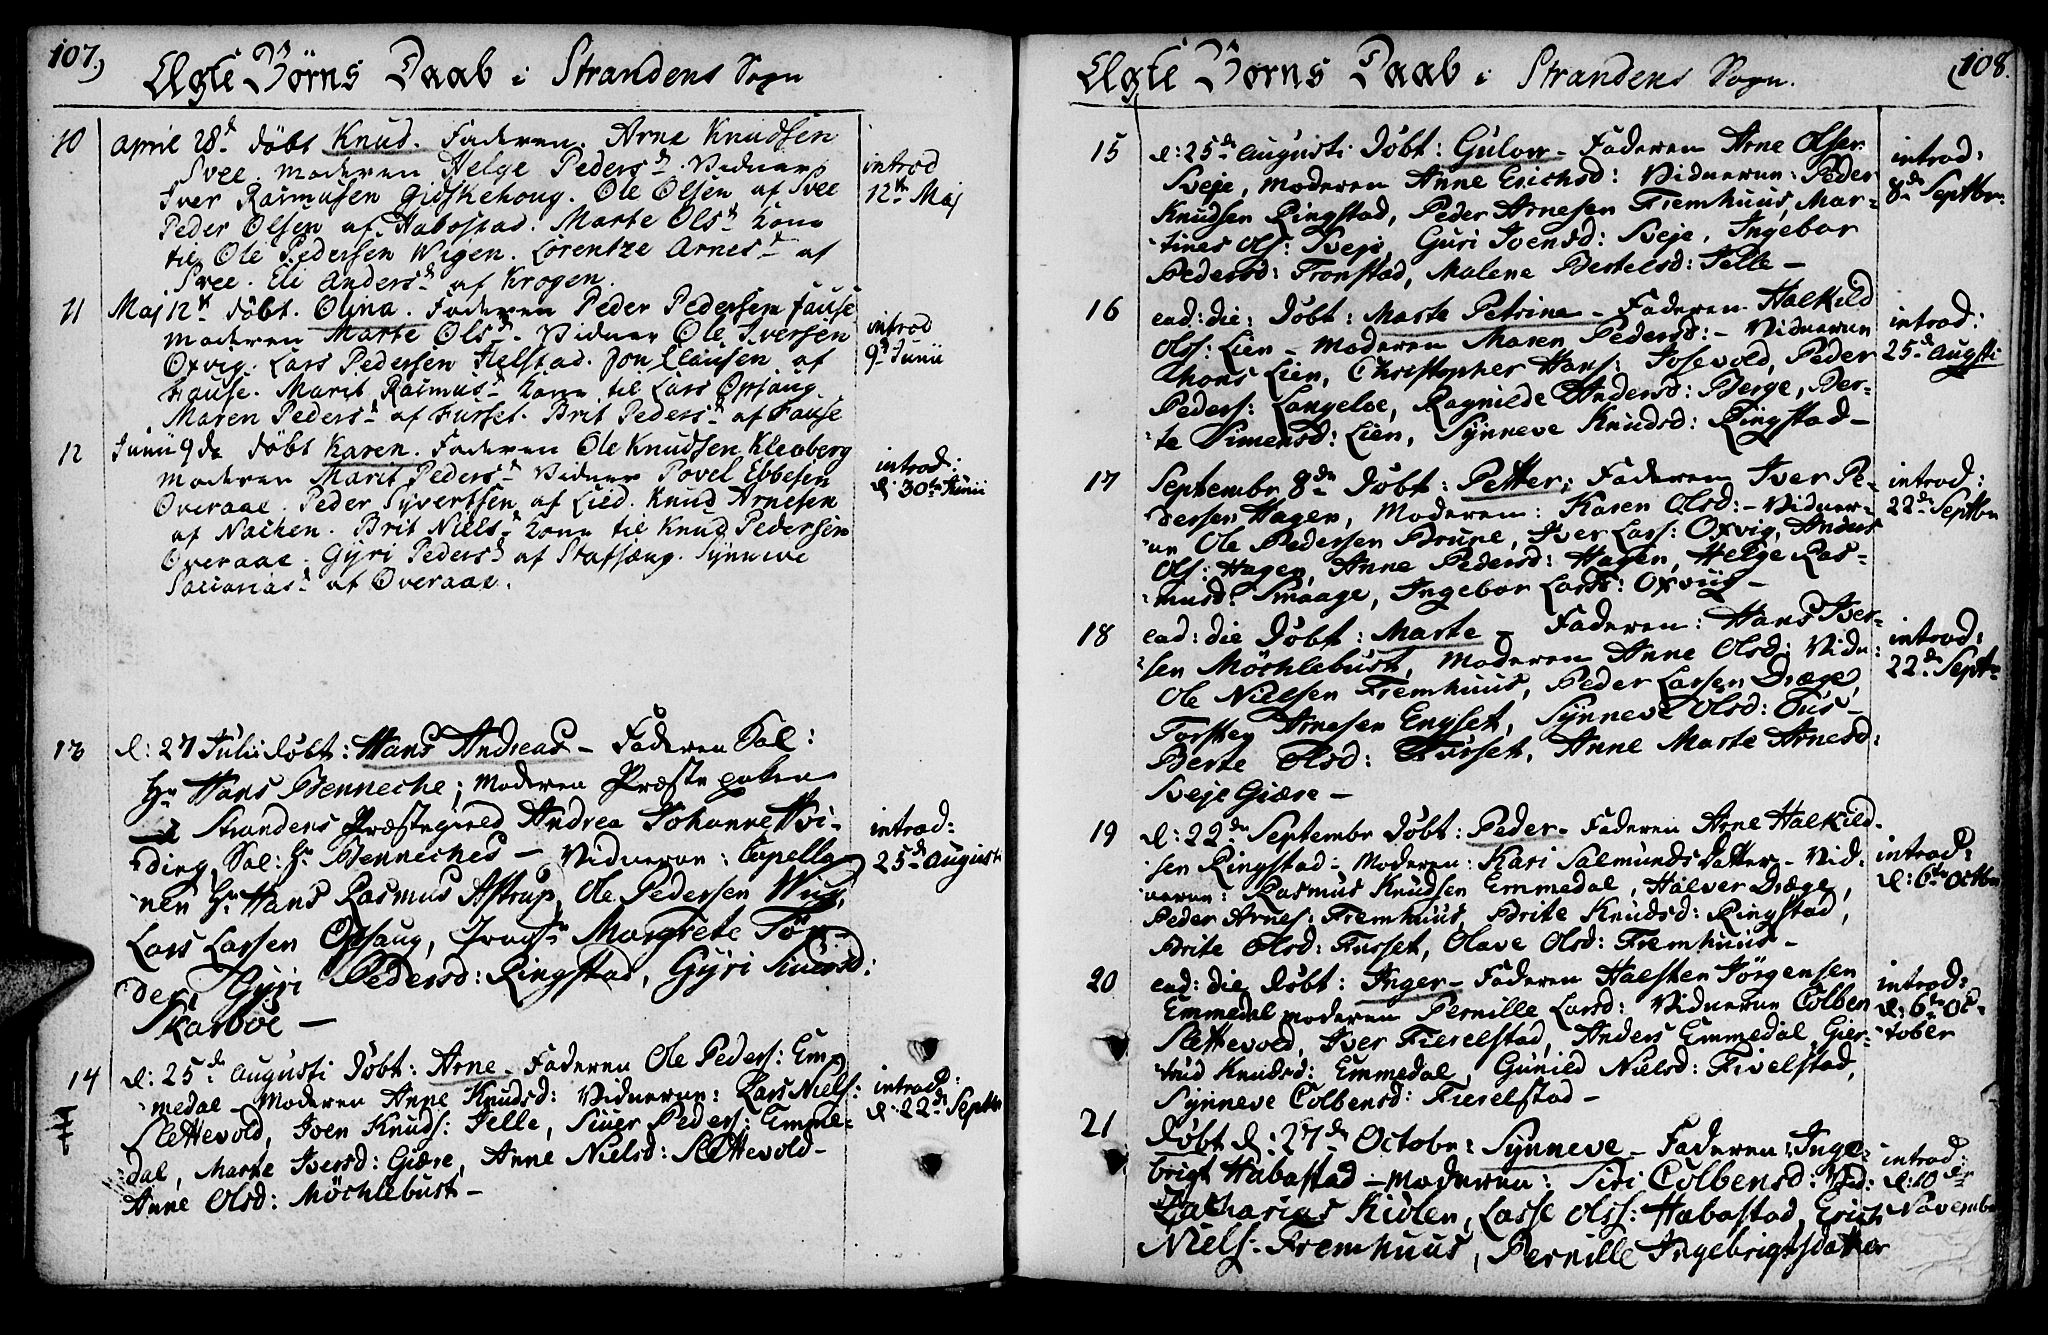 107)
Ægte Børns Daab i Strandens Sogn
10 April 28d døbt Knud. Faderen. Arne Knudsen
Svee. Moderen Helge Pedersd. Vidner
Iver Rasmusen Gidskehoug. Ole Olsen af Svee
Peder Olsen af Habostad. Marte Olsd kone
til Ole Pedersen Wigen. Lorentze Arnesd af
Svee. Eli Andersd af Krogen.
introd
12te Maj
11 Maj 12te døbt. Olina. Faderen Peder Pedersen Fause
Moderen Marte Olsd. Vidner Ole Iversen
Oxvig. Lars Pedersen Helstad. Jon Clausen af
Fause. Marit Rasmusd kone til Lars Opsaug.
Maren Pedersd af Furset. Brit Pedersd af Fause
introd
9d Junii
12 Junii 9de døbt Karen. Faderen Ole Knudsen Kleoberg
Moderen Marit Pedersd. Vidner Povel Ebbesen
Overaae. Peder Syvertsen af Lied. Knud Arnesen
af Nachen. Brit Nielsd kone til Knud Pedersen
Overaae. Gyri Pedersd af Stafsæng. Synneve
Sacariasd af Overaae.
introd:
d. 30te Junii
13 d: 27 Julii døbt: Hans Andreas - Faderen Sal:
Hr Hans Benneche; Moderen Præste enken
Strandens Præstegield Andrea Johanne Hvi-
ding, Sal: Hr Benneches - Vidnerne: Capella-
nen Hr Hans Rasmus Astrup, Ole Pedersen Wiig,
Lars Larsen Opsaug, Margrete Tøn-
der, Gyri Pedersd: Ringstad, Gyri Siursd:
Skarboe -
introd:
25de Augusti
14 d: 25de Augusti Døbt: Arne - Faderen Ole Peders: Em-
medal - Moderen Anne Knudsd: Vidnerne: Lars Niels:
Slettevold, Iven Knuds: Ielle, Siver Peders: Emme-
dal, Marte Iversd: Giære, Anne Nielsd: Slettevold -
Anne Olsd: Møchlebust -
introd:
d. 22de Septbr
Ægte Børns Daab i Strandens Sogn.
(108.
15 d: 25de Augusti Døbt: Gulow - Faderen Arne Olsen
Sveje, Moderen Anne Erichsd: Vidnerne: Peder
Knudsen Ringstad, Peder Arnesen Fremhuus, Mar-
tines Ols: Sveje, Guri Ivensd: Sveje, Ingebor
Pedersd: Tronstad, Malene Bertelsd: Ielle -
introd:
8de Septbr
16 ead: die: Døbt: Marte Petrine - Faderen Halkild
Olss: Lien - Moderen Maren Pedersd: - Vidnerne
Lien, Christopher Hans: Josevold, Peder
Peders: Langeloe, Ragnilde Andersd: Berge, Ber-
te Simensd: Lien, Synneve Knudsd: Ringstad -
introd:
25de Augsti
17 Septembr 8de Døbt: Petter; Faderen Iver Pe-
dersen Hagen, Moderen: Karen Olsd: - Vidner-
ne Ole Pedersen Brune, Iver Lars: Oxvig, Anders
Ols: Hagen, Anne Pedersd: Hagen, Helge Ras-
musd: Smaage, Ingebor Larsd: Oxviig -
introd:
22de Septbr
18 ead: die Døbt: Marte - Faderen: Hans Iver-
sen Møchlebust, Moderen Anne Olsd: Vidn:
Ole Nielsen Fremhuus, Peder Larsen Dræge,
Torsteg Arnesen Engset, Synneve Olsd: Tus-
Berte Olsd: Furset, Anne Marte Arnesd:
Sveje Giære -
introd:
22de Septr
19 d: 22de Septembr Døbt: Peder - Faderen Arne Halkild-
sen Ringstad - Moderen: Kari Salmunds Datter - Vid-
nerne: Rasmus Knudsen Emmedal, Halver Dræge,
Peder Arnes: Fremhuus, Brite Knudsd: Ringstad,
Brite Olsd: Furset, Olave Olsd: Fremhuus -
introd:
d: 6te Octbr
20 ead: die Døbt: Inger - Faderen Halsten Jørgensen
Emmedal Moderen Pernille Larsd: Vidnerne Colben
Slettevold, Iver Fierelstad, Anders Emmedal, Gier-
trud Knudsd: Emmedal, Gunild Nielsd: Fivelstad,
Synneve Colbensd: Fierelstad -
introd:
d: 6te Oc-
tober
21 Døbt d: 27de Octobr: Synneve - Faderen: Inge-
brigt Habostad - Moderen: Siri Colbensd: Vid:
Zacharias Kiølen, Lasse Olss: Habostad, Erich
Niels: Fremhuus, Pernille Ingebrigtsdatter
introd:
d: 10de
November